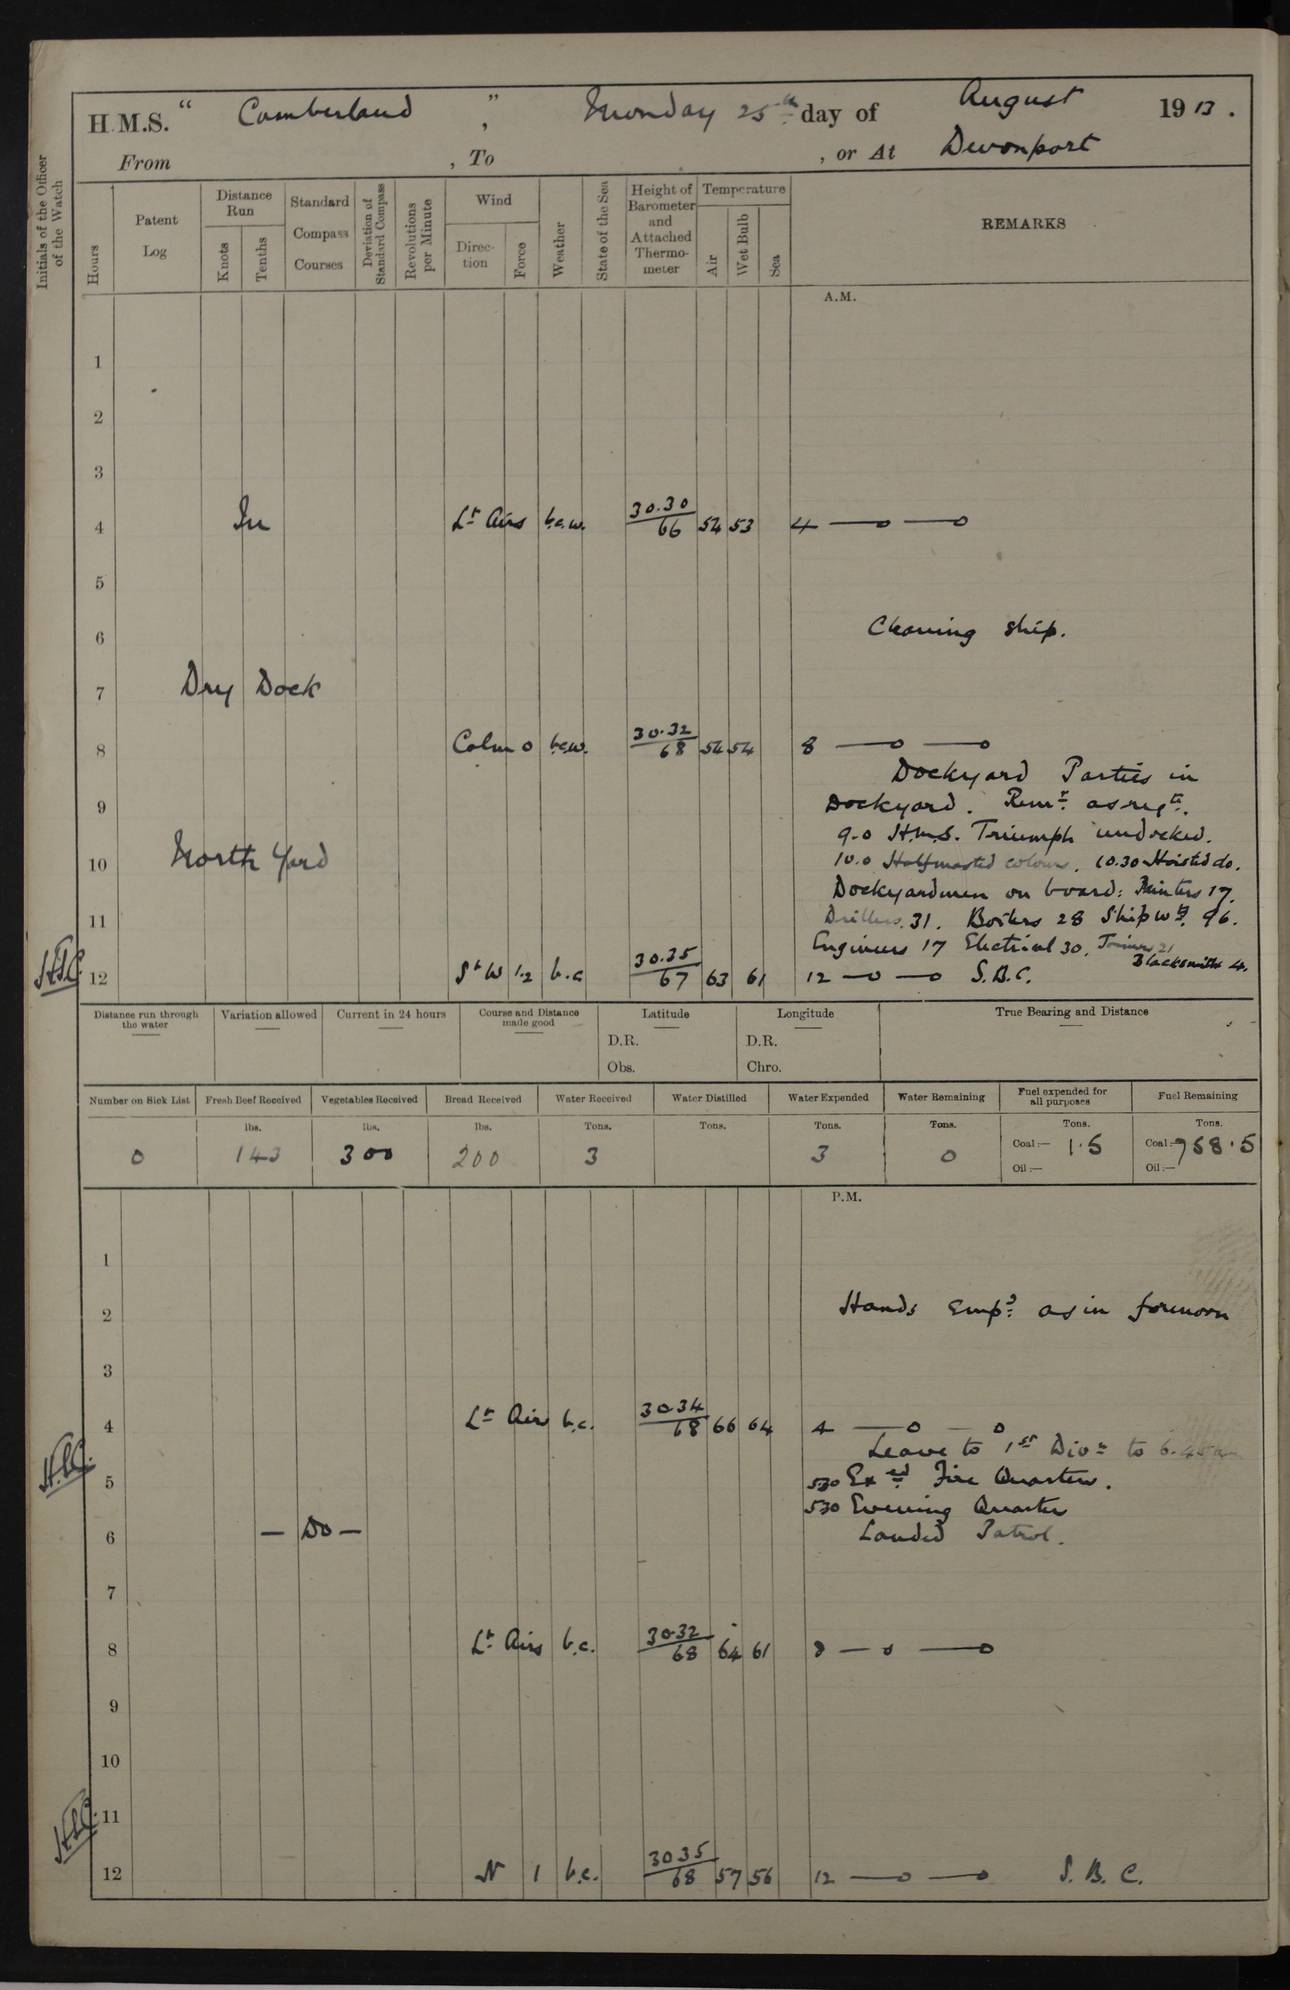 H.M.S. " Cumberland ", Monday 25th day of August 1913.
From , To , or At Devonport
Initials of the Officer of the Watch
Hours
Patent Log
Distance Run
Knots
Tenths
Standard Compass Courses
Deviation of Standard Compass
Revolutions per Minute
Wind
Direction
Force
Weather
State of the Sea
Height of Barometer and Attached Thermometer
Temperature
Air
Wet Bulb
Sea
REMARKS
A.M.
1
2
3
4 In Lt Airs b.c.w. 30.30 66 54 53 4 —o —o
5
6 Cleaning ship.
7 Dry Dock
8 Calm 0 b.c.w. 30.32 68 54 54 8 —o —o
Dockyard Parties in
9 Dockyard. Remr as reqte.
9.0 H.M.S. Triumph undocked.
10 North Yard 10.0 Halfmasted colours. 10.30 Hoisted do.
Dockyardmen on board: Painters 17.
11 Drillers 31. Boilers 28 Shipwts. 96.
Engineers 17 Electrical 30. Joiners 21
Blacksmiths 4.
12 St W 1.2 b.c 30.35 67 63 61 12 —o —o S.B.C.
Distance run through the water
Variation allowed
Current in 24 hours
Course and Distance made good
Latitude
D.R.
Obs.
Longitude
D.R.
Chro.
True Bearing and Distance
Number on Sick List Fresh Beef Received Vegetables Received Bread Received Water Received Water Distilled Water Expended Water Remaining Fuel expended for all purposes Fuel Remaining
lbs. lbs. lbs. Tons. Tons. Tons. Tons. Tons. Tons.
0 143 300 200 3 3 0 Coal:— 1.5 Coal:— 758.5
Oil:— Oil:—
P.M.
1
2 Hands Empd as in forenoon
3
4 Lt Airs b.c. 30.34 68 66 64 4 —o —o
Leave to 1st Divn to 6.45 am
5 530 Exed Fire Quarters.
530 Evening Quarters
6 — Do — Landed Patrol.
7
8 Lt Airs b.c. 30.32 68 64 61 8 —o —o
9
10
11
12 N 1 b.c. 30.35 68 57 56 12 —o —o S.B.C.